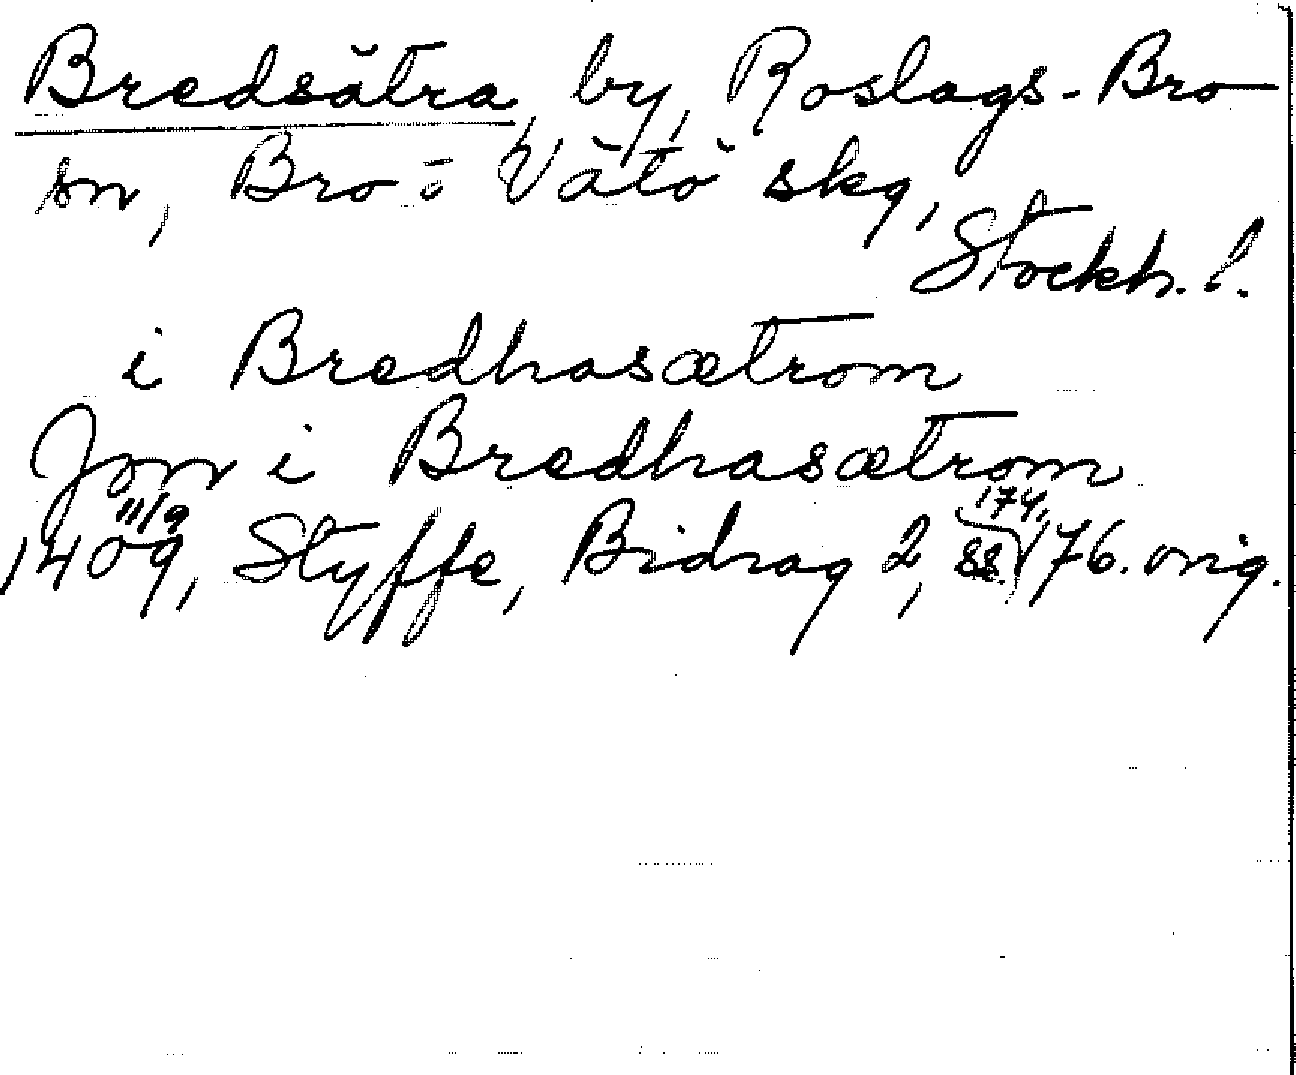 Bredsätra, by, Roslags-Bro
sn, Bro o Vätö skg,
Stockh. l.
i Bredhasætrom
Jon i Bredhasætrom
1409 11/9, Styffe, Bidrag 2, ss. 174, 176. orig.